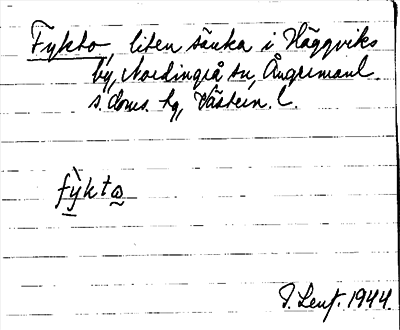 Fykto, liten sänka i Häggviks
by, Nordingrå sn, Ångermanl.
s. doms. hg, Västern. l.
fỳktω
P. Lenf. 1944.